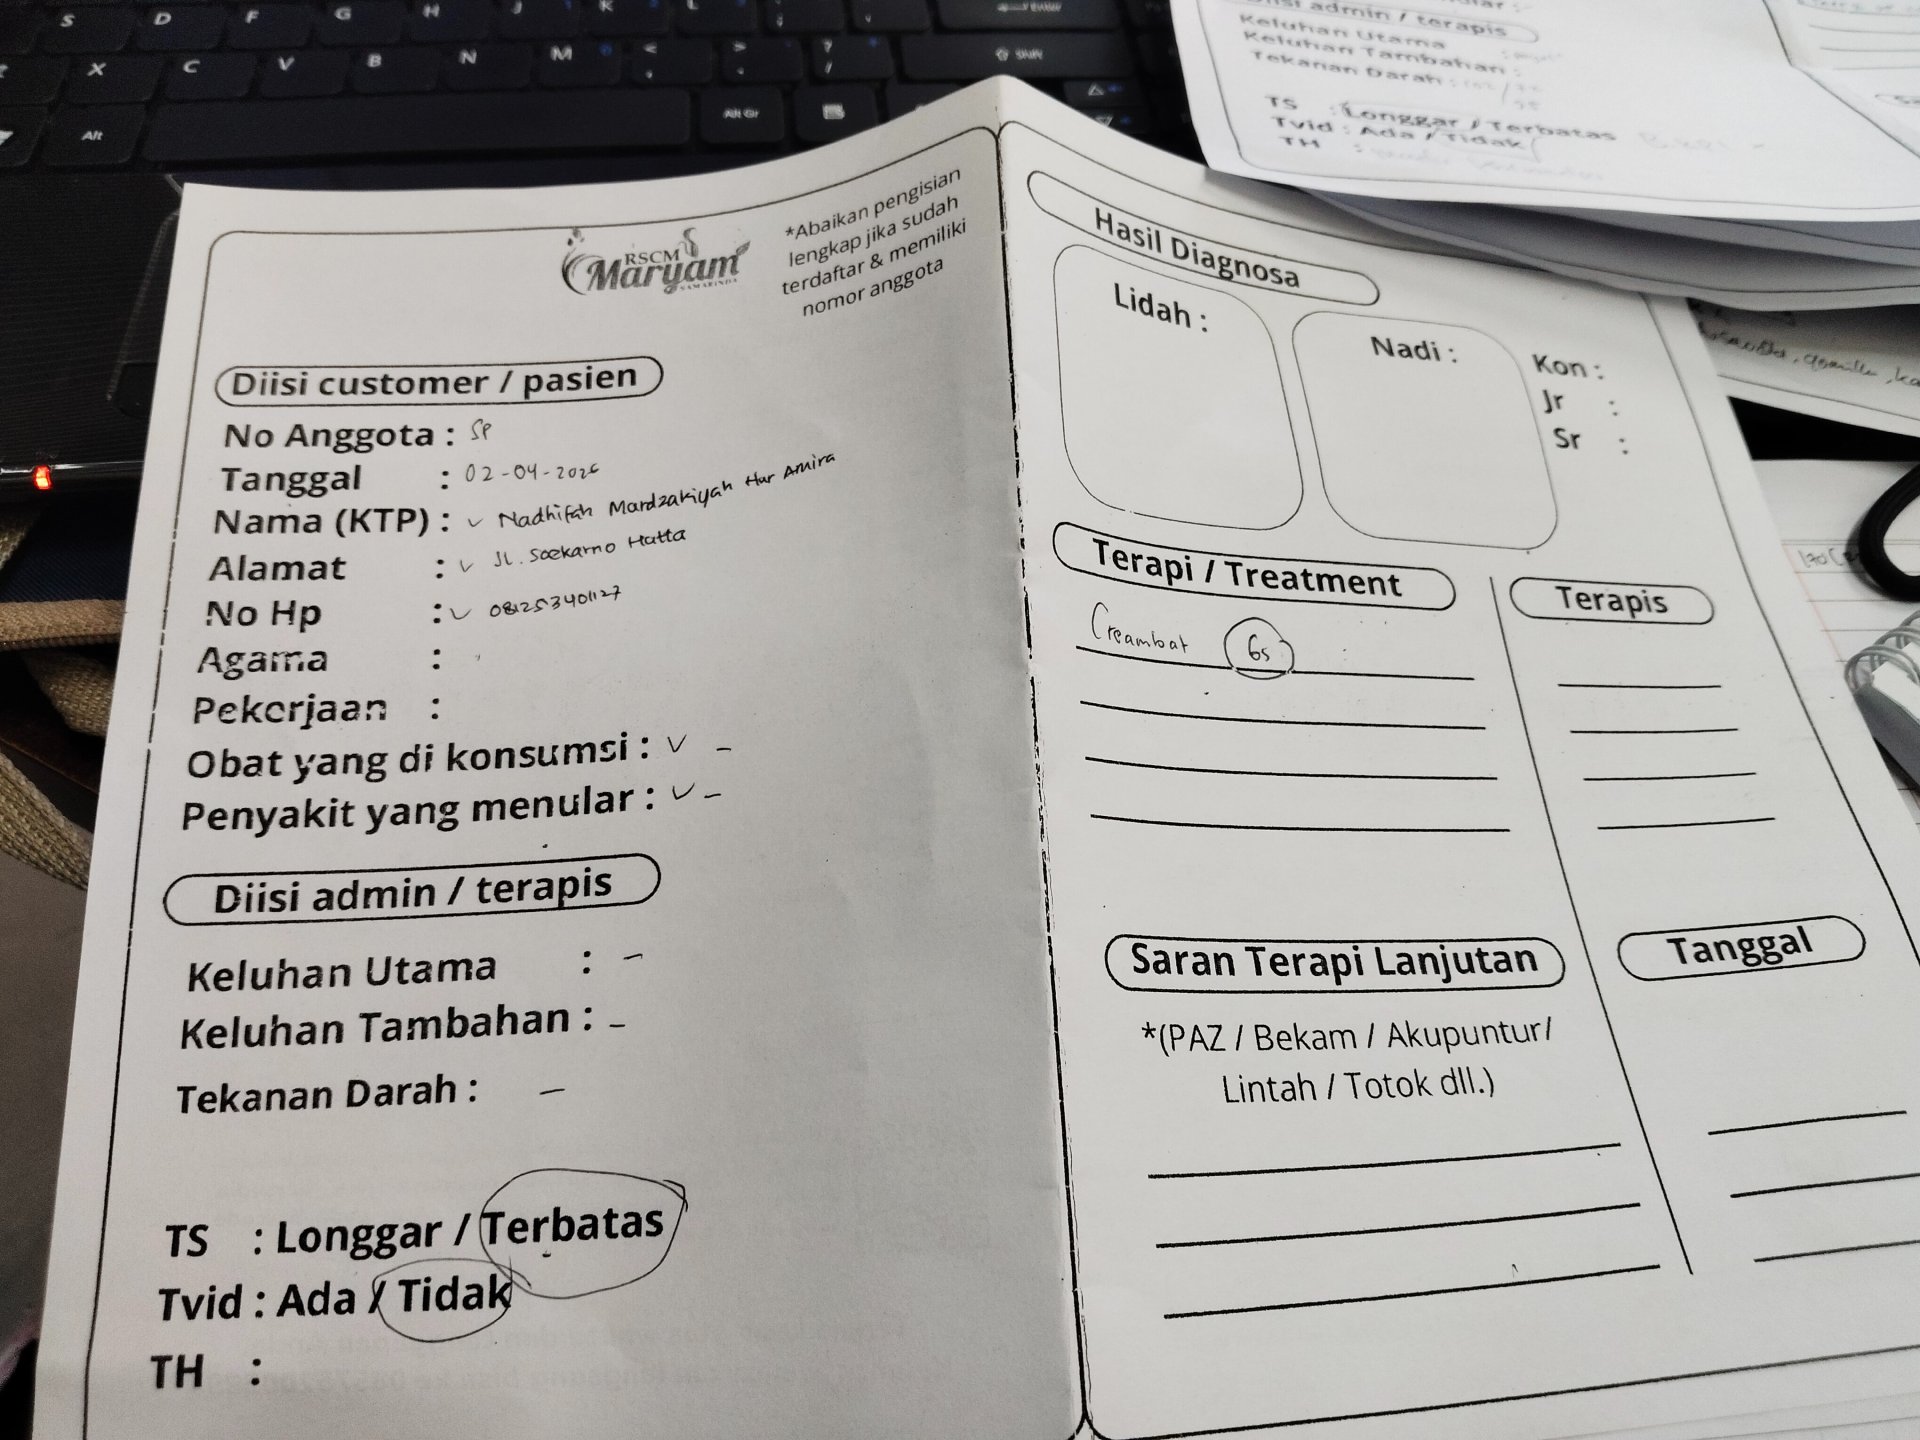 RSCM
Maryam
SAMARINDA
*Abaikan pengisian
lengkap jika sudah
terdaftar & memiliki
nomor anggota
Diisi customer / pasien
No Anggota : SP
Tanggal : 02-04-2026
Nama (KTP) : ✓ Nadhifah Mardzakiyah Hur Amira
Alamat : ✓ Jl. Soekarno Hatta
No Hp : ✓ 081253401127
Agama :
Pekerjaan :
Obat yang di konsumsi : ✓ -
Penyakit yang menular : ✓ -
Diisi admin / terapis
Keluhan Utama : -
Keluhan Tambahan : -
Tekanan Darah : -
TS : Longgar / Terbatas
Tvid : Ada / Tidak
TH :
Hasil Diagnosa
Lidah :
Nadi :
Kon :
Jr :
Sr :
Terapi / Treatment
Creambat 65
Terapis
Saran Terapi Lanjutan
*(PAZ / Bekam / Akupuntur/
Lintah / Totok dll.)
Tanggal
Diisi admin / terapis
Keluhan Utama
Keluhan Tambahan :
Tekanan Darah :
TS : Longgar / Terbatas
Tvid : Ada / Tidak
TH :
S D F G H J K L
X C V B N M
Alt
Alt Gr
Enter
Shift